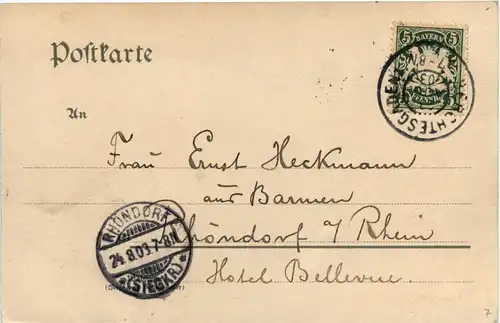 Postkarte
5 BAYERN 5
PFENNIG
BERCHTESGADEN
An
Frau Ernst Heckmann
aus Barmen
Rhöndorf a/Rhein
Hotel Bellevue.
RHÖNDORF
24.8.03.7-8N
*(SIEGKR.)*
7